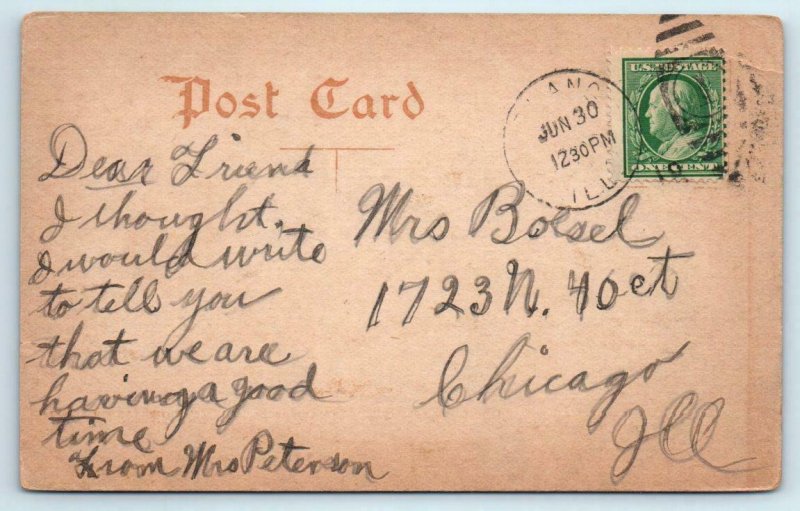 Post Card
U.S. POSTAGE
ONE CENT
LANO
JUN 30
12 30 PM
ILL
Dear Friend
I thought
I would write
to tell you
that we are
having a good
time
From Mrs Peterson
Mrs Boesel
1723 N. 40 ct
Chicago
Ill